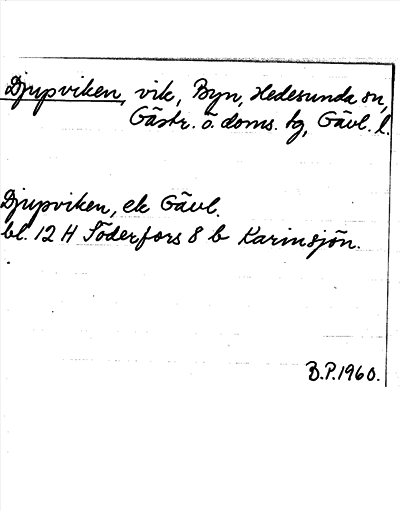 Djupviken, vik, Byn, Hedesunda sn,
Gästr. ö. doms. tg, Gävl. l.
Djupviken, ek Gävl.
bl. 12 H Söderfors 8 b Karinsjön.
B.P. 1960.